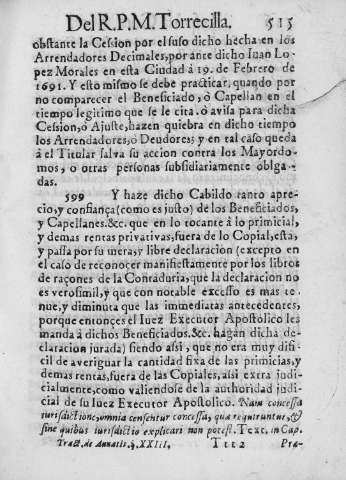 Del R. P. M. Torrecilla. 515
obstante la Cesion por el suso dicho hecha en los
Arrendadores Decimales, por ante dicho Iuan Lo-
pez Morales en esta Ciudad à 19. de Febrero de
1691. Y esto mismo se debe practicar, quando por
no comparecer el Beneficiado, ò Capellan en el
tiempo legitimo que se le cita, ò avisa para dicha
Cesion, ò Ajuste, hazen quiebra en dicho tiempo
los Arrendadores, ò Deudores; y en tal caso queda
à el Titular salva su accion contra los Mayordo-
mos, ò otras personas subsidiariamente obliga-
das.
599 Y haze dicho Cabildo tanto apre-
cio, y confiança (como es justo) de los Beneficiados,
y Capellanes. &c. que en lo tocante à lo primicial,
y demas rentas privativas, fuera de lo Copial, està,
y passa por su mera, y libre declaracion (excepto en
el caso de reconocer manifiestamente por los libros
de raçones de la Contraduria; que la declaracion no
es verosimil, y que con notable excesso es mas te-
nue, y diminuta que las immediatas antecedentes,
porque entonçes el Iuez Executor Apostolico les
manda à dichos Beneficiados. &c. hagan dicha de-
claracion jurada) siendo assi, que no era muy difi-
cil de averiguar la cantidad fixa de las primicias, y
demas rentas, fuera de las Copiales, assi extra judi-
cialmente, como valiendose de la authoridad judi-
cial de su Iuez Executor Apostolico. Nam concessa
iurisdictione, omnia censentur concessa, quæ requiruntur, &
sine quibus iurisdictio explicari non potest. Text. in Cap.
Tract. de Annatis. §. XXIII. Ttt2 Præ-